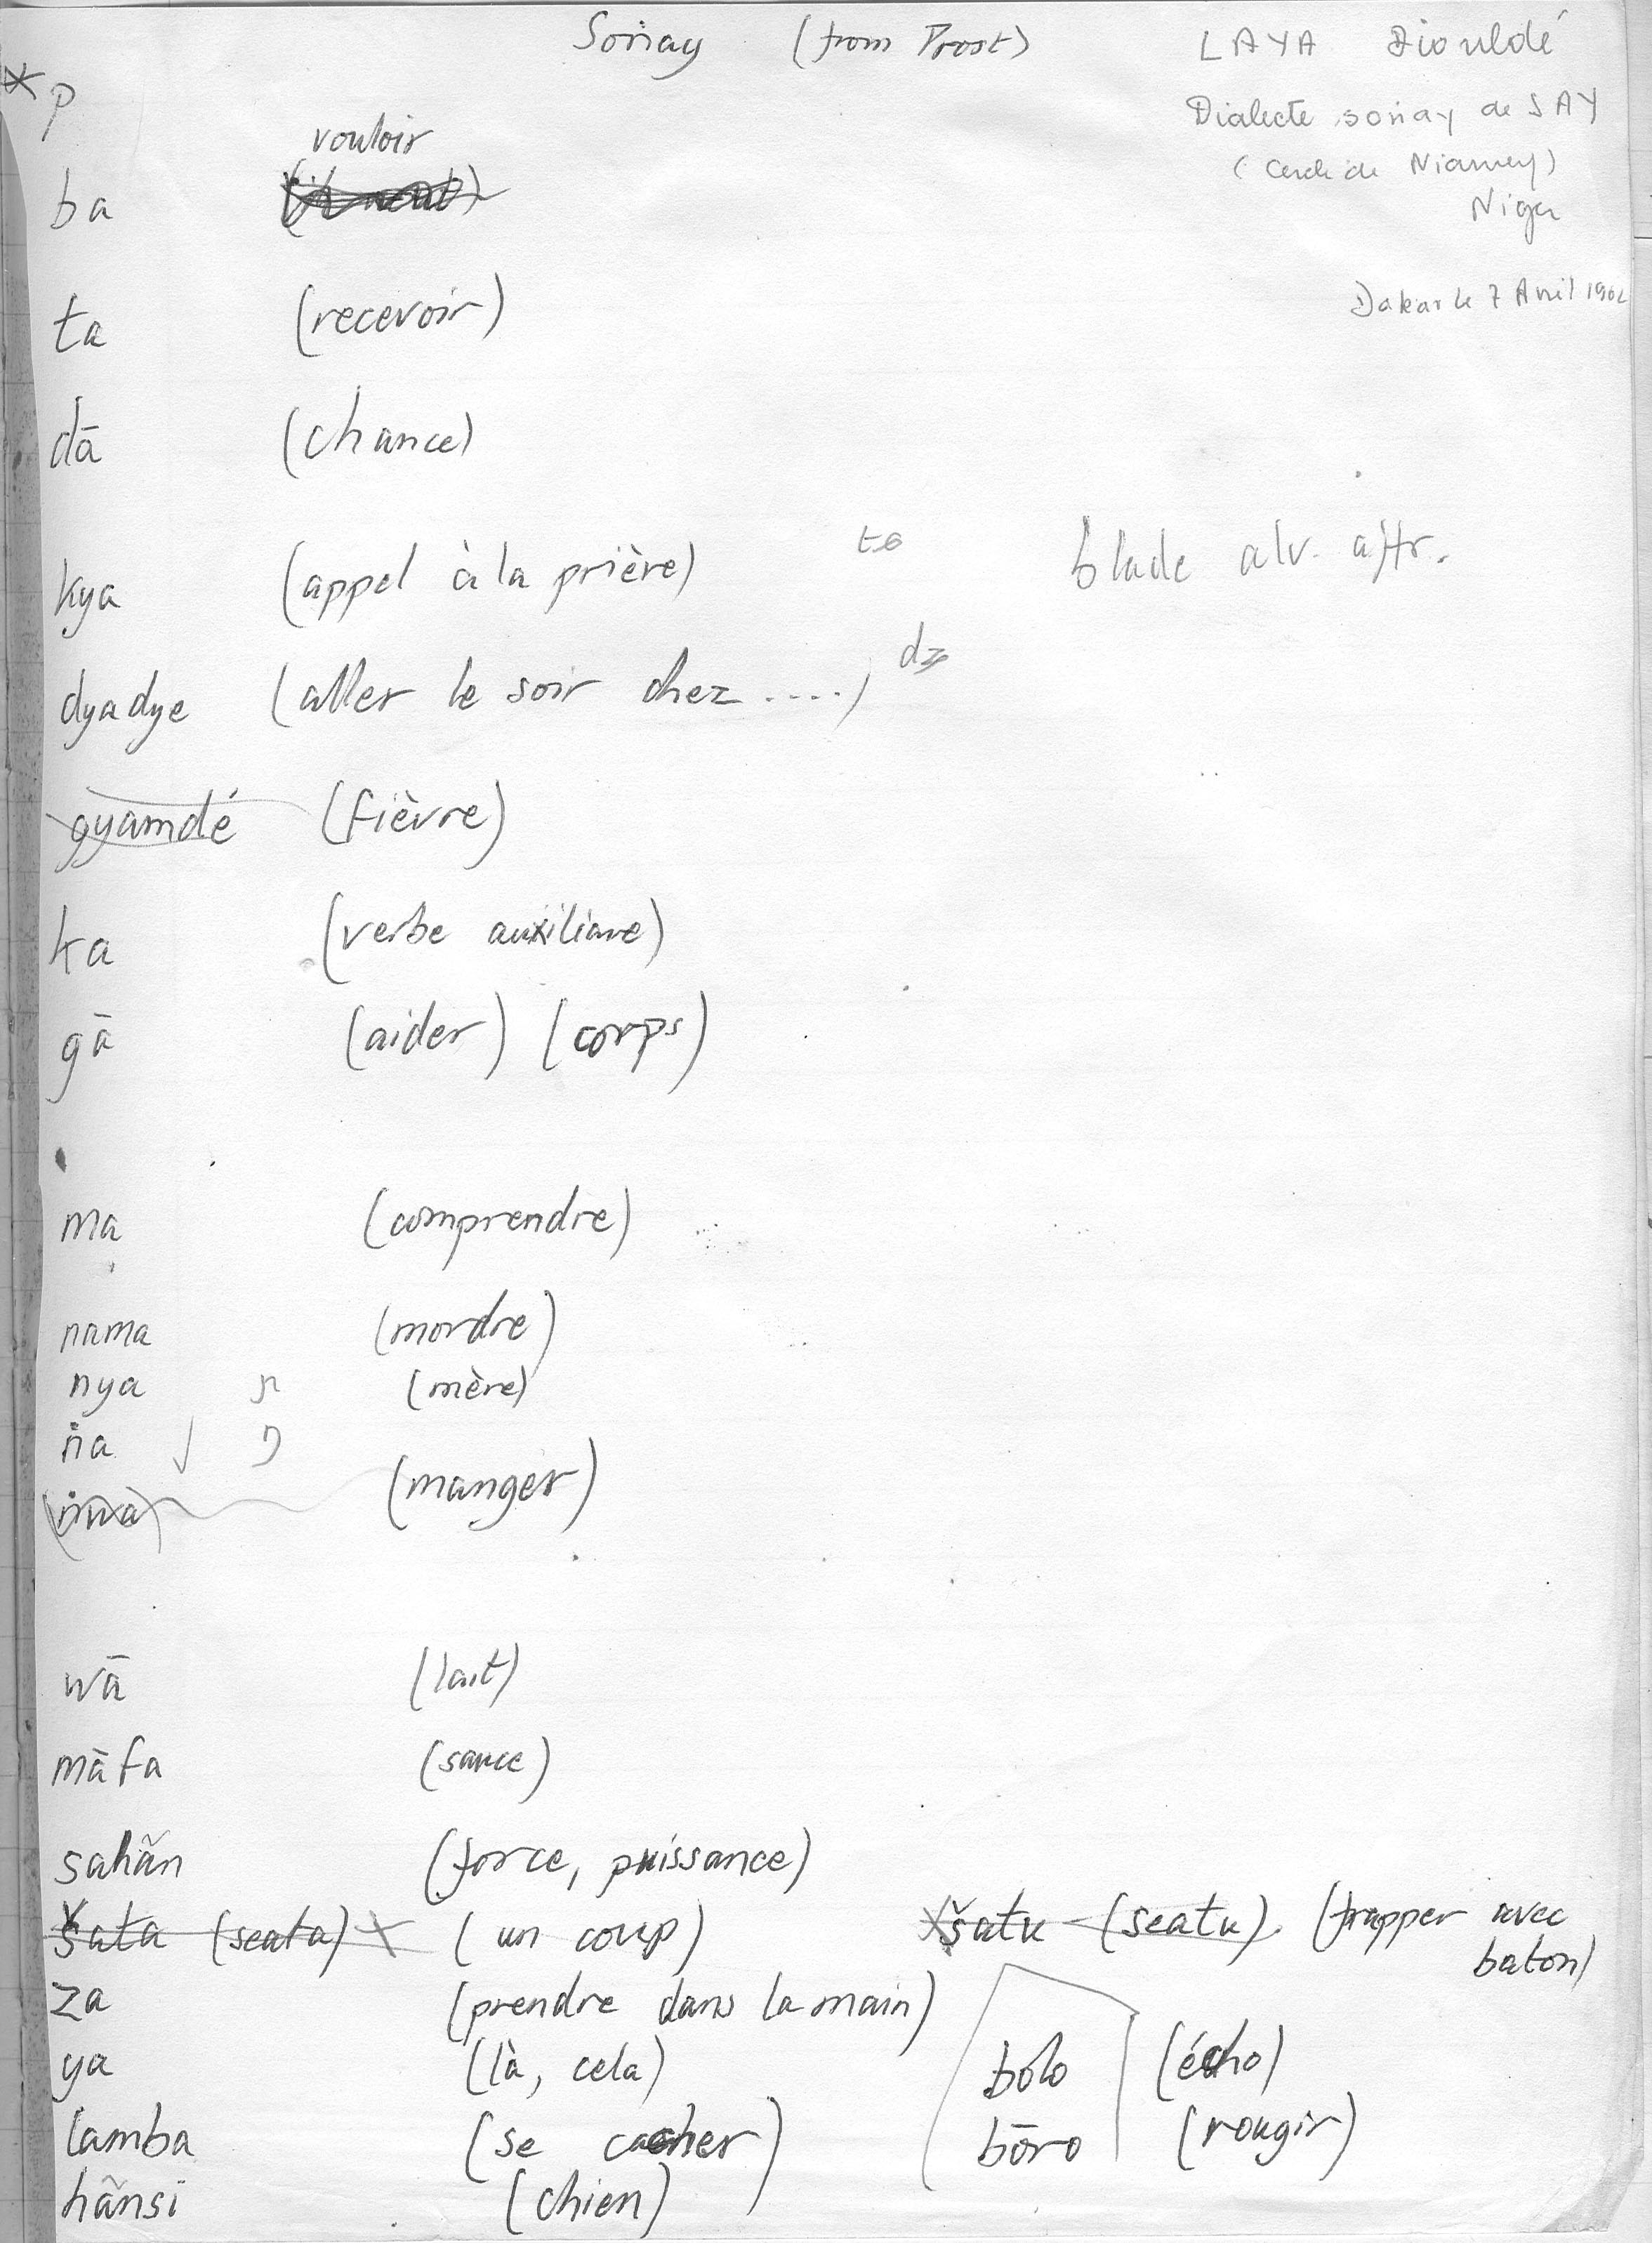 Soṅay (from Prost) LAYA Diouldé
*p
Dialecte soṅay de SAY
(Cercle de Niamey)
Niger
vouloir
ba
Dakar le 7 Avril
ta (recevoir)
dā (chance)
kya (appel à la prière) blade alv. affr.
dyadye (aller le soir chez .....) dz
gyamdé (fièvre)
ka (verbe auxiliaire)
gā (aider) (corps)
ma (comprendre)
nama (mordre)
nya ɲ (mère)
ṅa √ ŋ (manger)
(ṅwa)
wā (lait)
māfa (sauce)
sahãn (force, puissance)
šata (seata) x (un coup) xšatu (seatu). (frapper avec
baton)
za (prendre dans la main)
ya (là, cela) bolo (écho)
lamba (se cacher) bōro (rougir)
hãnsi (chien)